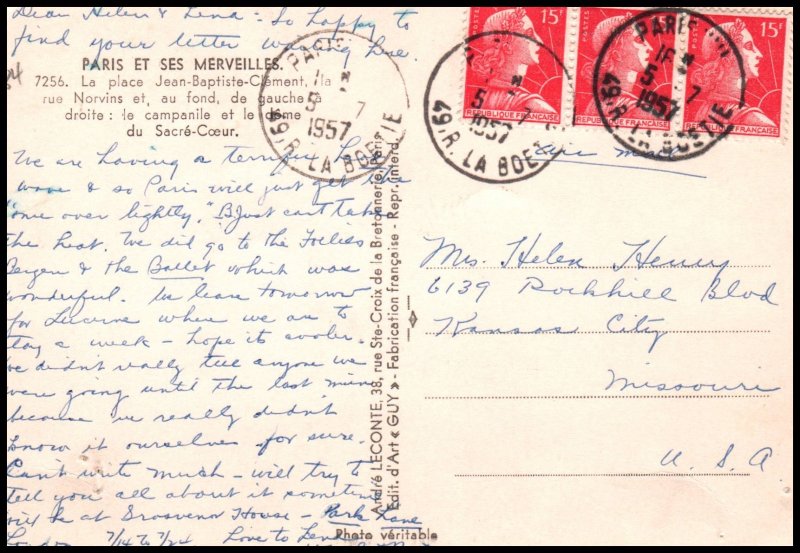 Dear Helen & Lena - So happy to
find your letter waiting here.
PARIS ET SES MERVEILLES.
7256. La place Jean-Baptiste-Clément, la
rue Norvins et, au fond, de gauche à
droite : le campanile et le dome
du Sacré-Cœur.
We are having a terrific heat
wave & so Paris will just get the
"once over lightly." B just can't take
the heat. We did go to the Follies
Bergere & the Ballet which was
wonderful. We leave tomorrow
for Lucerne where we are to
stay a week - hope its cooler.
We didn't really tell anyone we
were going until the last minute
because we really didn't
know it ourselves for sure.
Can't write much - will try to
tell you all about it sometime
will be at Grosvenor House - Park Lane
London 7/14 to 7/24 Love to Lena
André LECONTE, 38, rue Ste-Croix de la Bretonnerie, Paris
Edit. d'Art « GUY » - Fabrication française - Repr. interd.
Photo véritable
POSTES 15F
RÉPUBLIQUE FRANÇAISE
POSTES
RÉPUBLIQUE FRANÇAISE
15F
RÉPUBLIQUE FRANÇAISE
PARIS
5 7
1957
49, R. LA BOETIE
5 7
1957
49, R. LA BOETIE
PARIS
16
5 7
1957
49, R. LA BOETIE
air mail
Mrs. Helen Henry
6139 Rockhill Blvd
Kansas City
Missouri
U. S. A.